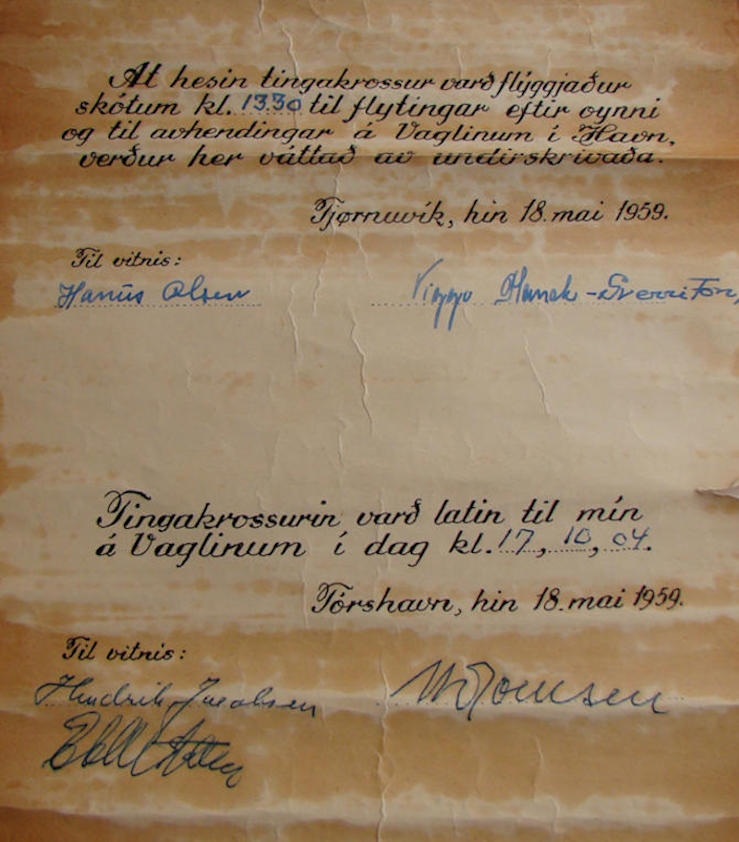 At hesin tingakrossur varð flýggjaður
skótum kl. 13.30 til flytingar eftir oynni
og til avhendingar á Vaglinum í Havn,
verður her váttað av undirskrivaða.
Tjørnuvík, hin 18. mai 1959.
Til vitnis:
Hanus Olsen Viggo - Sverri Fon
Tingakrossurin varð latin til mín
á Vaglinum í dag kl. 17, 10, 04.
Tórshavn, hin 18. mai 1959.
Til vitnis:
Hendrik Jacobsen